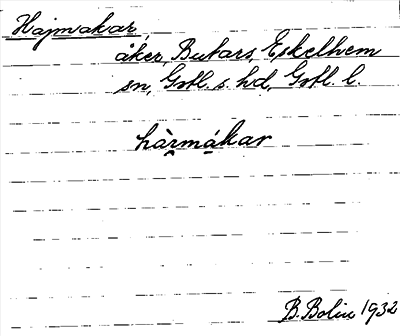 Hajmakar,
åker, Butars, Eskelhem
sn, Gotl. s. hd, Gotl. l.
hàrmákar
B. Bolin 1932